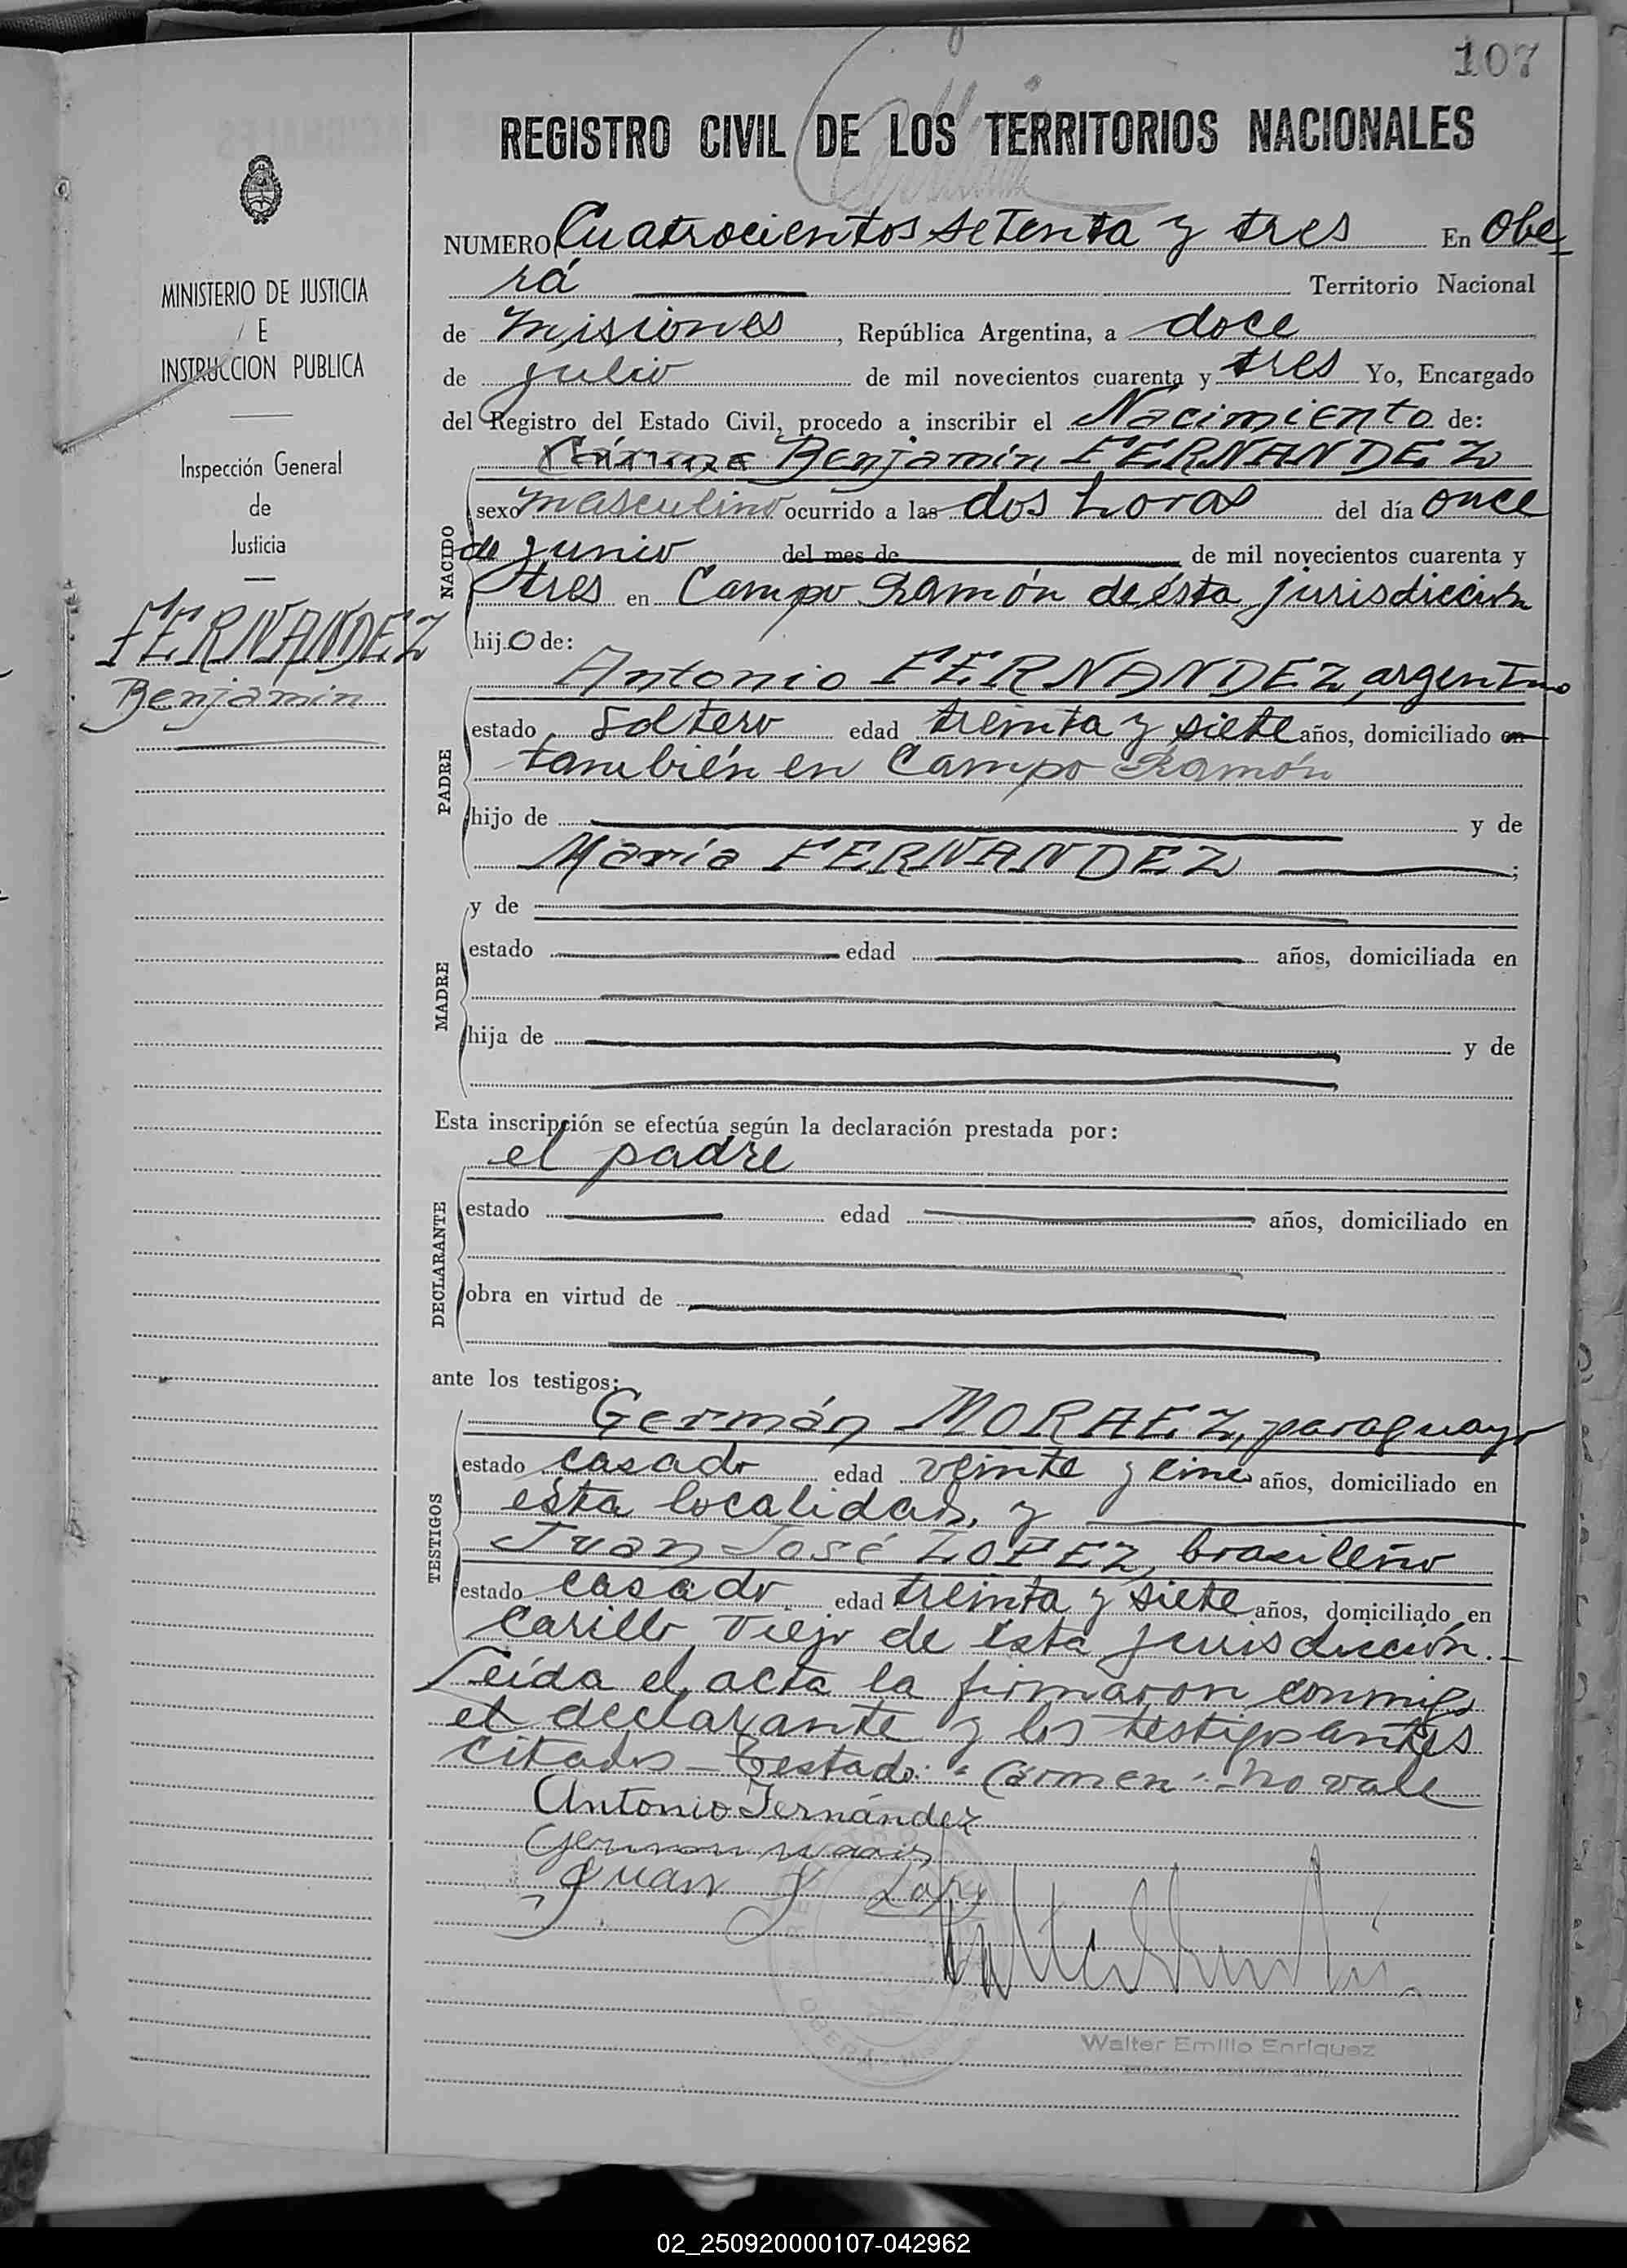 107
REGISTRO CIVIL DE LOS TERRITORIOS NACIONALES
MINISTERIO DE JUSTICIA
E
INSTRUCCION PUBLICA
Inspección General
de
Justicia
FERNANDEZ
Benjamin
NUMERO Cuatrocientos setenta y tres En Obe-
rá Territorio Nacional
de Misiones, República Argentina, a doce
de julio de mil novecientos cuarenta y tres Yo, Encargado
del Registro del Estado Civil, procedo a inscribir el Nacimiento de:
NACIDO
Carmen Benjamin FERNANDEZ
sexo masculino ocurrido a las dos horas del día once
de junio del mes de de mil novecientos cuarenta y
tres en Campo Ramón de ésta jurisdicción
hijo de:
PADRE
Antonio FERNANDEZ, argentino
estado soltero edad treinta y siete años, domiciliado en
también en Campo Ramón
hijo de y de
María FERNANDEZ ;
MADRE
y de
estado edad años, domiciliada en
hija de y de
Esta inscripción se efectúa según la declaración prestada por:
DECLARANTE
el padre
estado edad años, domiciliado en
obra en virtud de
ante los testigos:
TESTIGOS
Germán MORAEZ, paraguayo
estado casado edad veinte y cinco años, domiciliado en
ésta localidad, y
Juan José LOPEZ, brasileño
estado casado edad treinta y siete años, domiciliado en
Viejo de ésta jurisdicción.-
Leída el acta la firmaron conmigo
el declarante y los testigos antes
citados - Testado: "Carmen" - No vale
Antonio Fernández
Juan J Lopez
OBERA
Walter Emilio Enriquez
02_250920000107-042962